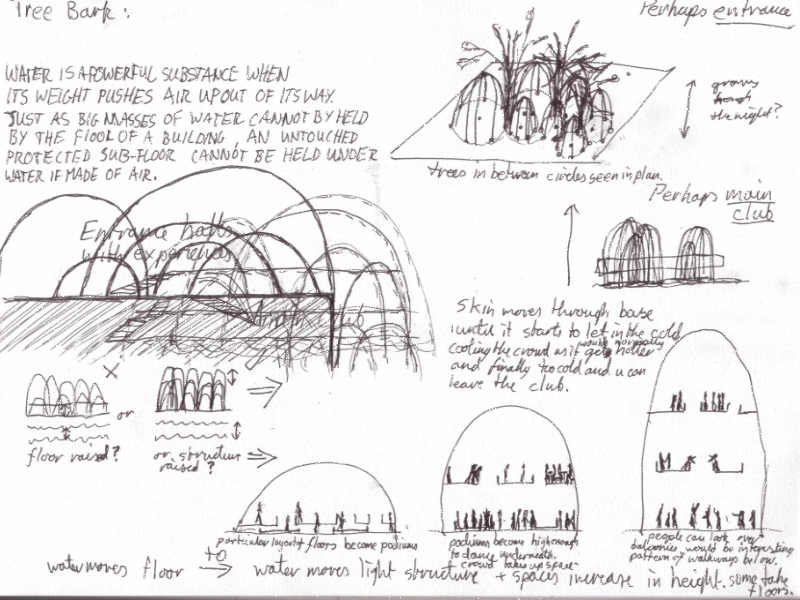 Tree Bark:
WATER IS A POWERFUL SUBSTANCE WHEN
ITS WEIGHT PUSHES AIR UP OUT OF ITS WAY.
JUST AS BIG MASSES OF WATER CANNOT BY HELD
BY THE FLOOR OF A BUILDING, AN UNTOUCHED
PROTECTED SUB-FLOOR CANNOT BE HELD UNDER
WATER IF MADE OF AIR.
Perhaps entrance
the night?
trees in between circles seen in plan.
Perhaps main
club
Entrance halls
with experiences
club
Skin moves through base
until it starts to let in the cold
cooling the crowd as it would normally get hotter
and finally too cold and u can
leave the club.
floor raised?
or
or structure
raised?
particular layout of floors become podiums
podiums become high enough
to dance underneath.
crowd takes up space
people can look over
balconies would be interesting
pattern of walkways below.
water moves floor to water moves light structure + spaces increase in height. some take
floors.